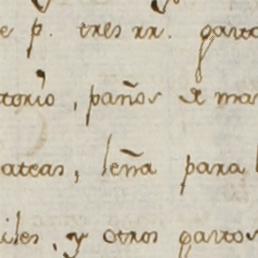 e p. tres rr. gasto
torio, paños de ma
ateas, leña para l
iles, y otros gastos